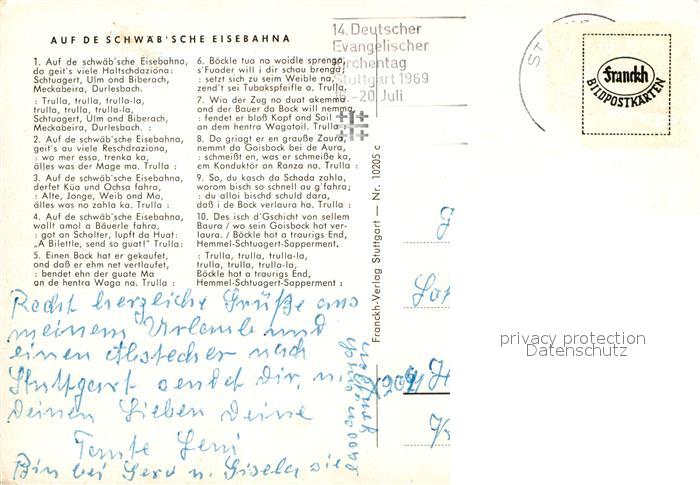 AUF DE SCHWÄB'SCHE EISEBAHNA
1. Auf de schwäb'sche Eisebahna,
do geit's viele Haltschdaziona:
Schtuagert, Ulm ond Biberach,
Meckabeira, Durlesbach.
: Trulla, trulla, trulla-la,
trulla, trulla, trulla-la,
Schtuagert, Ulm ond Biberach,
Meckabeira, Durlesbach. :
2. Auf de schwäb'sche Eisebahna,
geit's au viele Reschdraziona,
: wo mer essa, trenka ka,
älles was der Mage ma. Trulla :
3. Auf de schwäb'sche Eisebahna,
derfet Küa und Ochsa fahra,
: Alte, Jonge, Weib ond Ma,
älles was no zahla ka. Trulla :
4. Auf de schwäb'sche Eisebahna,
wollt amol a Bäuerle fahra,
: got an Schalter, lupft da Huat:
„A Bilettle, send so guat!" Trulla:
5. Einen Bock hat er gekaufet,
ond daß er ehm net vertlaufet,
: bendet ehn der guate Ma
an de hentra Waga na. Trulla :
6. Böckle tua no woidle sprenga,
s'Fuader will i dir schau brenga;
: setzt sich zu seim Weible na,
zend't sei Tubakspfeifle a. Trulla,
7. Wia der Zug no duat akemma
ond der Bauer da Bock will nemma
: fendet er bloß Kopf ond Soil
an dem hentra Wagatoil. Trulla
8. Do griagt er en grauße Zaura,
nemmt da Goisbock bei de Aura,
: schmeißt en, was er schmeiße ka,
em Konduktör an Ranza na. Trulla :
9. So, du kasch da Schada zahla,
worom bisch so schnell au g'fahra;
: du alloi bischd schuld dara,
daß i de Bock verlaura ha. Trulla :
10. Des isch d'Gschicht von sellem
Baura / wo sein Goisbock hot ver-
laura. / Böckle hot a traurigs End,
Hemmel-Schtuagert-Sapperment.
: Trulla, trulla, trulla-la,
trulla, trulla, trulla-la,
Böckle hot a traurigs End,
Hemmel-Schtuagert-Sapperment :
14. Deutscher
Evangelischer
Kirchentag
Stuttgart 1969
16.-20. Juli
ST
Franckh
BILDPOSTKARTEN
Franckh-Verlag Stuttgart — Nr. 10205 c
privacy protection
Datenschutz
Recht herzliche Grüße aus
meinem Urlaub und
einen Abstecher nach
Stuttgart sendet Dir, u.
Deinen Lieben Deine
Tante Leni
Bin bei Gerd u. Gisela die